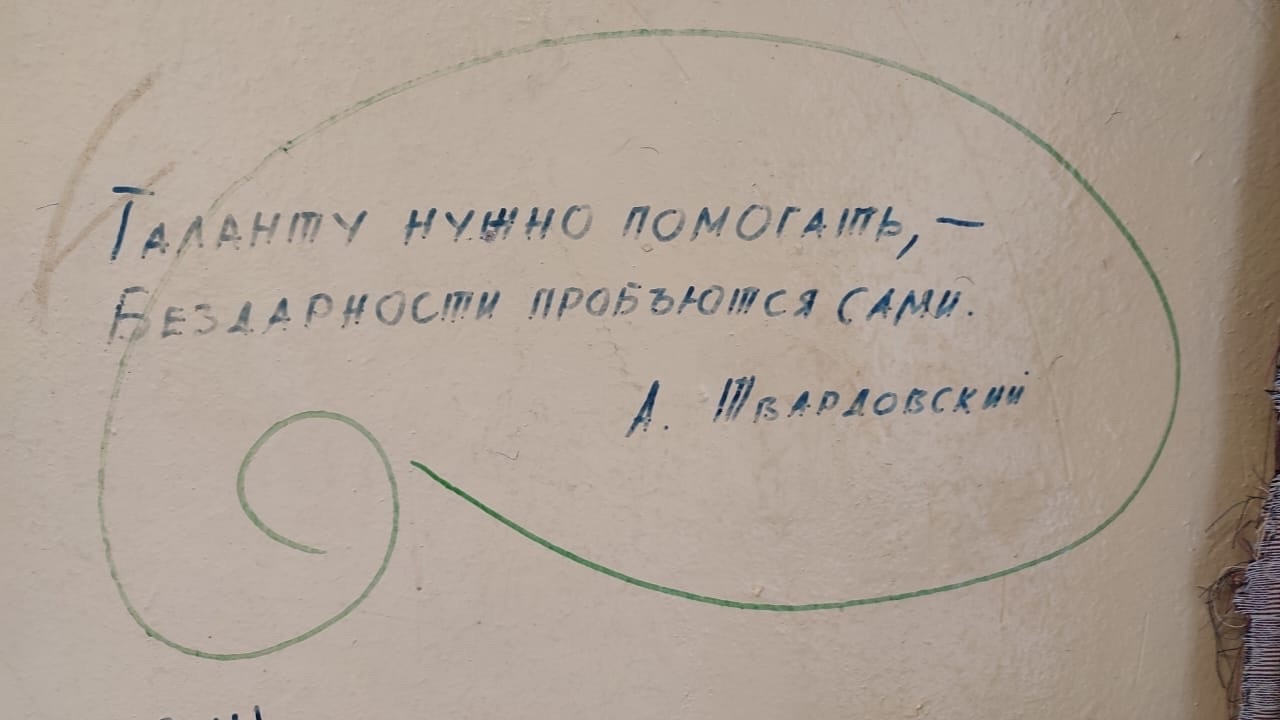 Таланту нужно помогать, —
Бездарности пробъются сами.
А. Твардовский